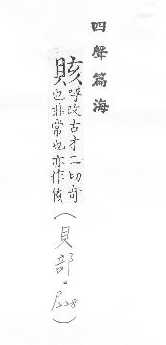 四聲篇海
賅
呼改古才二切奇
也非常也亦作侅
(貝部。P228)